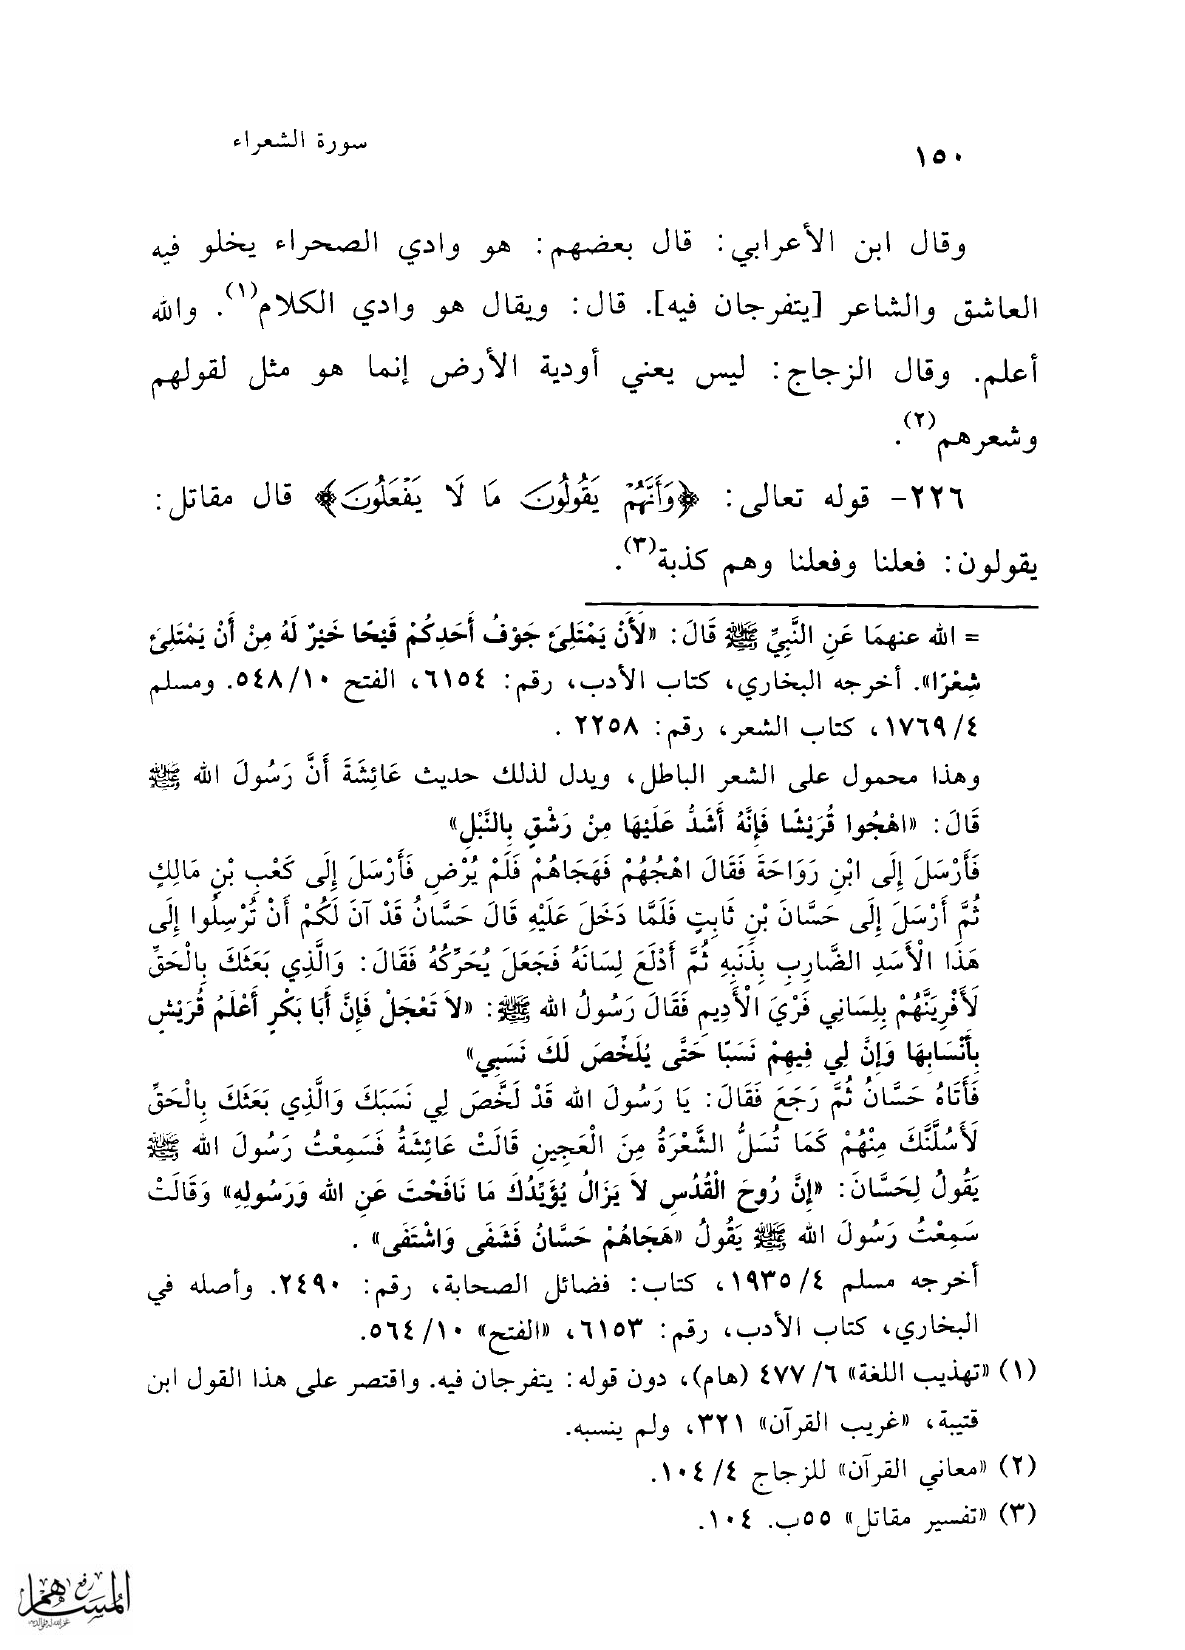 ١٥٠
سورة الشعراء
وقال ابن الأعرابي: قال بعضهم: هو وادي الصحراء يخلو فيه
العاشق والشاعر [يتفرجان فيه]. قال: ويقال هو وادي الكلام(١). والله
أعلم. وقال الزجاج: ليس يعني أودية الأرض إنما هو مثل لقولهم
وشعرهم(٢).
٢٢٦- قوله تعالى: ﴿وَأَنَّهُمْ يَقُولُونَ مَا لَا يَفْعَلُونَ﴾ قال مقاتل:
يقولون: فعلنا وفعلنا وهم كذبة(٣).
= الله عنهمَا عَنِ النَّبِيِّ ﷺ قَالَ: «لَأَنْ يَمْتَلِئَ جَوْفُ أَحَدِكُمْ قَيْحًا خَيْرٌ لَهُ مِنْ أَنْ يَمْتَلِئَ
شِعْرًا». أخرجه البخاري، كتاب الأدب، رقم: ٦١٥٤، الفتح ١٠/ ٥٤٨. ومسلم
٤/ ١٧٦٩، كتاب الشعر، رقم: ٢٢٥٨ .
وهذا محمول على الشعر الباطل، ويدل لذلك حديث عَائِشَةَ أَنَّ رَسُولَ الله ﷺ
قَالَ: «اهْجُوا قُرَيْشًا فَإِنَّهُ أَشَدُّ عَلَيْهَا مِنْ رَشْقٍ بِالنَّبْلِ»
فَأَرْسَلَ إِلَى ابْنِ رَوَاحَةَ فَقَالَ اهْجُهُمْ فَهَجَاهُمْ فَلَمْ يُرْضِ فَأَرْسَلَ إِلَى كَعْبِ بْنِ مَالِكٍ
ثُمَّ أَرْسَلَ إِلَى حَسَّانَ بْنِ ثَابِتٍ فَلَمَّا دَخَلَ عَلَيْهِ قَالَ حَسَّانُ قَدْ آنَ لَكُمْ أَنْ تُرْسِلُوا إِلَى
هَذَا الْأَسَدِ الضَّارِبِ بِذَنَبِهِ ثُمَّ أَدْلَعَ لِسَانَهُ فَجَعَلَ يُحَرِّكُهُ فَقَالَ: وَالَّذِي بَعَثَكَ بِالْحَقِّ
لَأَفْرِيَنَّهُمْ بِلِسَانِي فَرْيَ الْأَدِيمِ فَقَالَ رَسُولُ الله ﷺ: «لاَ تَعْجَلْ فَإِنَّ أَبَا بَكْرٍ أَعْلَمُ قُرَيْشٍ
بِأَنْسَابِهَا وَإِنَّ لِي فِيهِمْ نَسَبًا حَتَّى يُلَخِّصَ لَكَ نَسَبِي»
فَأَتَاهُ حَسَّانُ ثُمَّ رَجَعَ فَقَالَ: يَا رَسُولَ الله قَدْ لَخَّصَ لِي نَسَبَكَ وَالَّذِي بَعَثَكَ بِالْحَقِّ
لَأَسُلَّنَّكَ مِنْهُمْ كَمَا تُسَلُّ الشَّعْرَةُ مِنَ الْعَجِينِ قَالَتْ عَائِشَةُ فَسَمِعْتُ رَسُولَ الله ﷺ
يَقُولُ لِحَسَّانَ: «إِنَّ رُوحَ الْقُدُسِ لاَ يَزَالُ يُؤَيِّدُكَ مَا نَافَحْتَ عَنِ الله وَرَسُولِهِ» وَقَالَتْ
سَمِعْتُ رَسُولَ الله ﷺ يَقُولُ «هَجَاهُمْ حَسَّانُ فَشَفَى وَاشْتَفَى» .
أخرجه مسلم ٤/ ١٩٣٥، كتاب: فضائل الصحابة، رقم: ٢٤٩٠. وأصله في
البخاري، كتاب الأدب، رقم: ٦١٥٣، «الفتح» ١٠/ ٥٦٤.
(١) «تهذيب اللغة» ٦/ ٤٧٧ (هام)، دون قوله: يتفرجان فيه. واقتصر على هذا القول ابن
قتيبة، «غريب القرآن» ٣٢١، ولم ينسبه.
(٢) «معاني القرآن» للزجاج ٤/ ١٠٤.
(٣) «تفسير مقاتل» ٥٥ب. ١٠٤.
رفع
المساهم